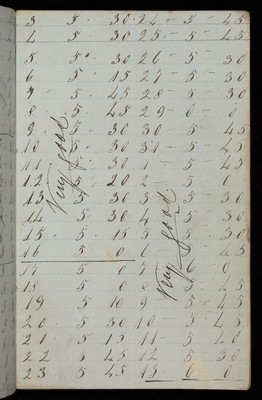 3 5 - 30 24 - 5 - 45
4 5 - 30 25 - 5 - 45
5 5 - 30 26 - 5 - 30
6 5 - 15 27 - 5 - 30
7 - 5 - 45 28 - 5 - 30
8 5 - 45 29 - 6 - 0
9 5 - 30 30 - 5 - 45
10 5 - 30 31 - 5 - 45
11 5 - 30 5 - 45
12 20 2 5 0
13 5 - 30 3 5 - 30
14 5 - 30 4 5 - 30
15 - 5 - 15 5 5 - 30
16 5 0 6 45
17 5 0 7 6 0
18 5 0 8 5 - 45
19 5 - 10 9 5 - 45
20 - 5 - 30 10 - 5 - 45
21 5 - 15 11 - 5 - 40
22 5 - 45 12 5 - 30
23 5 - 45 13 6 0
Very good
Very good